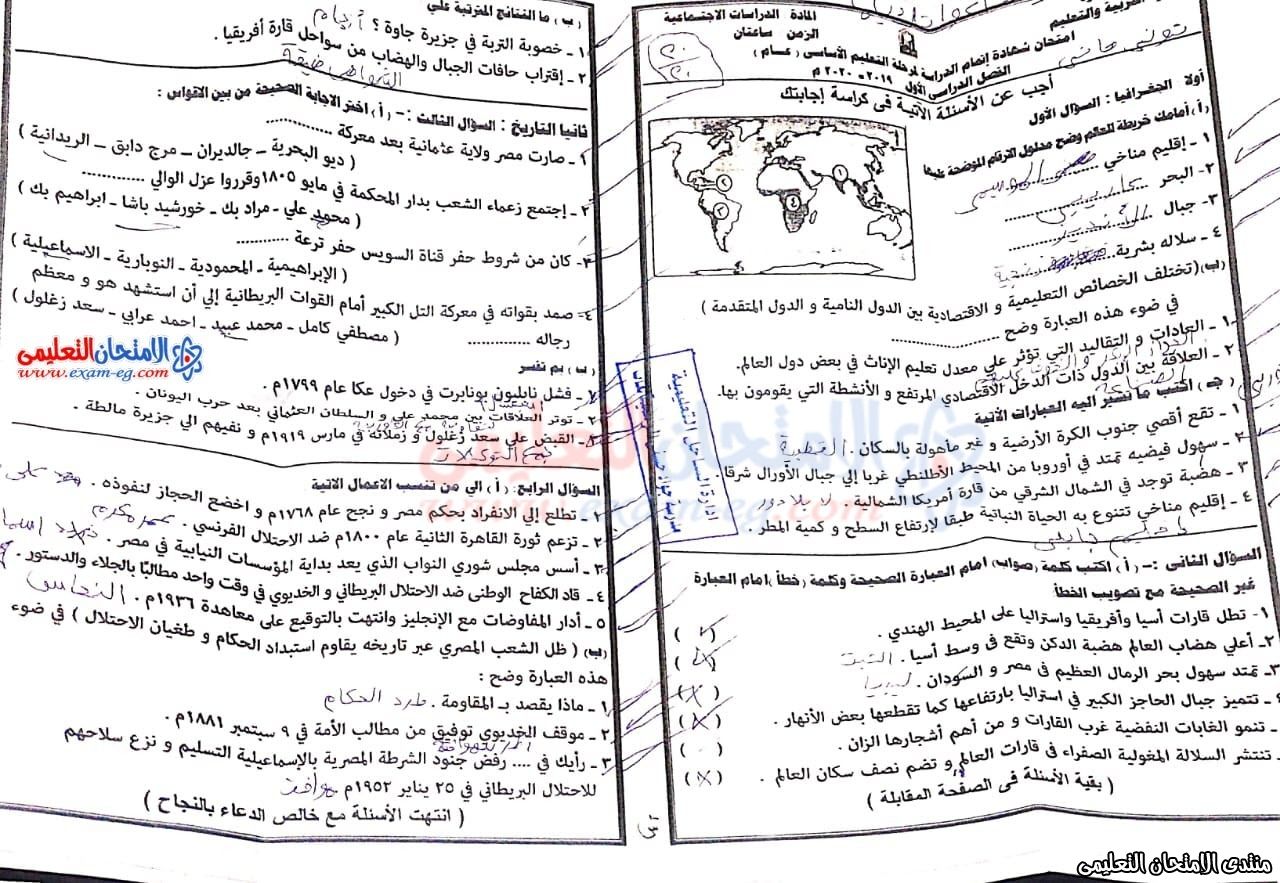 التربية والتعليم
المادة الدراسات الاجتماعية
امتحان شهادة إتمام الدراسة لمرحلة التعليم الأساسى ( عـــام )
الزمن ساعتان
الفصل الدراسى الأول ٢٠١٩ - ٢٠٢٠ م
أجب عن الأسئلة الآتية فى كراسة إجابتك
أولا الجغرافيا : السؤال الأول
(أ) أمامك خريطة للعالم وضح مدلول الارقام الموضحة عليها
١ - إقليم مناخي
٢- البحر
٣- جبال
٤ - سلاله بشرية
(ب) (تختلف الخصائص التعليمية و الاقتصادية بين الدول النامية و الدول المتقدمة )
في ضوء هذه العبارة وضح
١ - العادات و التقاليد التي تؤثر علي معدل تعليم الإناث في بعض دول العالم.
٢ - العلاقة بين الدول ذات الدخل الاقتصادي المرتفع و الأنشطة التي يقومون بها.
(جـ) اكتب ما تشير اليه العبارات الأتية
١ - تقع أقصي جنوب الكرة الأرضية و غير مأهولة بالسكان . القطبية
٢ - سهول فيضيه تمتد في أوروبا من المحيط الأطلنطي غربا إلي جبال الأورال شرقا .
٣ - هضبة توجد في الشمال الشرقي من قارة أمريكا الشمالية. لابلادور
٤ - إقليم مناخي تتنوع به الحياة النباتية طبقا لإرتفاع السطح و كمية المطر .
السؤال الثانى :- ( أ ) اكتب كلمة (صواب) امام العبارة الصحيحة وكلمة ( خطأ ) امام العبارة
غير الصحيحة مع تصويب الخطأ
١- تطل قارات أسيا وأفريقيا واستراليا على المحيط الهندي . ( ✓ )
٢- أعلي هضاب العالم هضبة الدكن وتقع فى وسط أسيا . التبت ( X )
٣- تمتد سهول بحر الرمال العظيم فى مصر و السودان . ليبيا ( X )
٤ - تتميز جبال الحاجز الكبير في استراليا بارتفاعها كما تقطعها بعض الأنهار . ( X )
- تنمو الغابات النفضية غرب القارات و من أهم أشجارها الزان . ( )
- تنتشر السلالة المغولية الصفراء فى قارات العالم و تضم نصف سكان العالم . ( X )
( بقية الأسئلة فى الصفحة المقابلة )
(ب) ما النتائج المترتبة علي
١ - خصوبة التربة في جزيرة جاوة ؟
٢ - إقتراب حافات الجبال والهضاب من سواحل قارة أفريقيا .
ثانيا التاريخ : السؤال الثالث :- ( أ ) اختر الاجابة الصحيحة من بين الاقواس :
١ - صارت مصر ولاية عثمانية بعد معركة ..............
( ديو البحرية – جالديران – مرج دابق – الريدانية )
٢ - إجتمع زعماء الشعب بدار المحكمة في مايو ١٨٠٥ وقرروا عزل الوالي .............
( محمد علي - مراد بك - خورشيد باشا - ابراهيم بك )
٣- كان من شروط حفر قناة السويس حفر ترعة ............
( الإبراهيمية - المحمودية - النوبارية - الاسماعيلية )
٤- صمد بقواته في معركة التل الكبير أمام القوات البريطانية إلي أن استشهد هو و معظم
رجاله ............. ( مصطفي كامل - محمد عبيد - احمد عرابي - سعد زغلول )
(ب) بم تفسر
١- فشل نابليون بونابرت في دخول عكا عام ١٧٩٩م .
٢- توتر العلاقات بين محمد علي و السلطان العثماني بعد حرب اليونان .
٣- القبض علي سعد زغلول و زملائه في مارس ١٩١٩م و نفيهم الي جزيرة مالطة .
جمع التوكيلات
السؤال الرابع: ( أ ) الي من تنسب الاعمال الاتية
١ - تطلع إلي الانفراد بحكم مصر و نجح عام ١٧٦٨م و اخضع الحجاز لنفوذه .
٢ - تزعم ثورة القاهرة الثانية عام ١٨٠٠م ضد الاحتلال الفرنسي . عمر مكرم
٣ - أسس مجلس شوري النواب الذي يعد بداية المؤسسات النيابية في مصر .
٤ - قاد الكفاح الوطنى ضد الاحتلال البريطاني و الخديوي في وقت واحد مطالبًا بالجلاء والدستور .
٥ - أدار المفاوضات مع الإنجليز وانتهت بالتوقيع على معاهدة ١٩٣٦م . النحاس
(ب) ( ظل الشعب المصري عبر تاريخه يقاوم استبداد الحكام و طغيان الاحتلال ) في ضوء
هذه العبارة وضح :
١ - ماذا يقصد بـ المقاومة . طرد الحكام
٢ - موقف الخديوي توفيق من مطالب الأمة في ٩ سبتمبر ١٨٨١م .
٣ - رأيك في .... رفض جنود الشرطة المصرية بالإسماعيلية التسليم و نزع سلاحهم
للاحتلال البريطاني في ٢٥ يناير ١٩٥٢م
( انتهت الأسئلة مع خالص الدعاء بالنجاح )
الامتحان التعليمى
www.exam-eg.com
منتدى الامتحان التعليمى